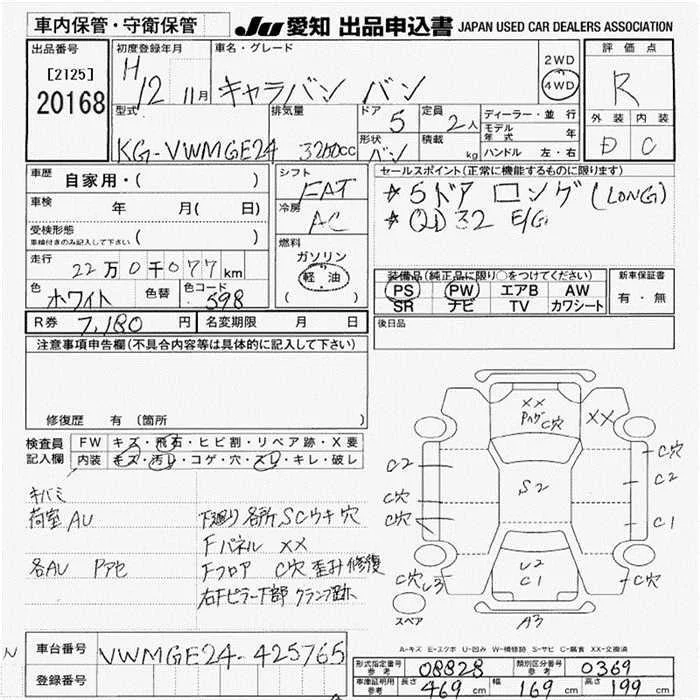 車内保管・守衛保管
JU 愛知 出品申込書 JAPAN USED CAR DEALERS ASSOCIATION
出品番号
[2125]
20168
初度登録年月
H 12 11月
車名・グレード
キャラバン バン
2WD
4WD
評価点
R
外装 内装
D C
型式
KG-VWMGE24
排気量
3200cc
ドア 5
形状 バン
定員 2人
積載 kg
ディーラー・並行
モデル年式 年
ハンドル 左・右
車歴 自家用・( )
車検 年 月( 日)
受検形態
車検付きのみ記入して下さい ( )
走行 22万0千077km
色 ホワイト 色替 色コード 598
シフト FAT
冷房 AC
燃料
ガソリン
軽油
( )
セールスポイント(正常に機能するものに限ります)
☆ 5ドア ロング (LONG)
☆ QD 32 E/G
装備品(純正品に限り○をつけてください)
PS PW エアB AW
SR ナビ TV カワシート
新車保証書
有・無
R券 7,180円 名変期限 月 日
後日品
注意事項申告欄(不具合内容等は具体的に記入して下さい)
修復歴 有(箇所 )
検査員記入欄
FW キズ・飛石・ヒビ割・リペア跡・X要
内装 キズ・汚れ・コゲ・穴・スレ・キレ・破レ
キバミ
荷室AU 下廻り各所SCウキ穴
Fパネル XX
各AU Pアセ Fフロア C穴 歪み修復
右Fピラー下部 クランプ跡
XX
C穴
XX
C2
S2
C2
C穴
C穴
C1
U2
C1
C穴
C穴
スペア
A3
A-キズ E-エクボ U-凹み W-補修跡 S-サビ C-腐食 XX-交換済
N
車台番号 VWMGE24-425765
登録番号
形式指定番号 参考 08828 類別区分番号 参考 0369
車庫証明用 参考 長さ 469cm 幅 169cm 高さ 199cm